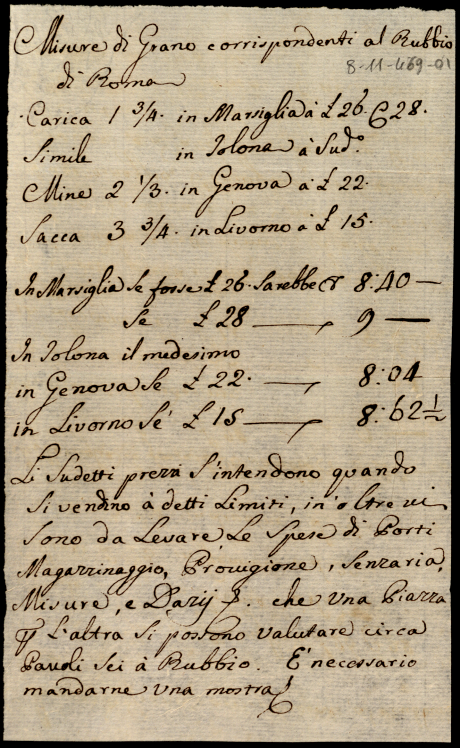 Misure di Grano corrispondenti al Rubbio
8-11-469-01
di Roma
Carica 1 3/4. in Marsiglia à £ 26. e 28.
Simile in Tolone à Sud.º
Mine 2 1/3. in Genova à £ 22.
Sacca 3 3/4. in Livorno à £ 15.
In Marsiglia se fosse £ 26. Sarebbe 8:40 —
Se £ 28 — 9 —
In Tolona il medesimo
in Genova Se £ 22. — 8:04
in Livorno Sè £ 15 — 8:62 1/2
Li Sudetti prezzi S'intendono quando
Si vendino à detti Limiti, in oltre vi
Sono da Levare Le Spese di Porti
Magazzinaggio, Provigione, Senzaria,
Misure, e Dazij che Una Piazza
L'altra Si possono valutare circa
Pauoli Sei à Rubbio. È necessario
mandarne Una mostra